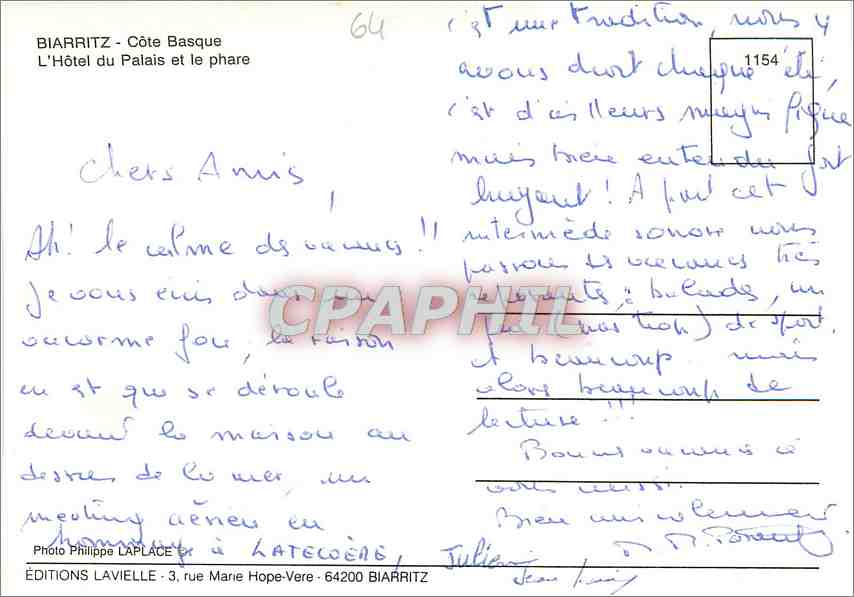 BIARRITZ - Côte Basque
L'Hôtel du Palais et le phare
64
1154
Chers Amis,
Ah! le calme des vacances!!
Je vous écris dans un
vacarme fou, la raison
en est que se déroule
devant la maison au
dessus de la mer, un
meeting aérien en
hommage à LATECOÈRE,
c'est une tradition, nous y
avons droit chaque été,
c'est d'ailleurs magnifique
mais bien entendu fort
bruyant! A part cet
intermède sonore nous
passons des vacances très
reposantes; balades, un
peu (pas trop) de sport,
et beaucoup mais
alors beaucoup de
lecture!!!
Bonnes vacances à
vous aussi.
Bien amicalement
Julien
CPAPHIL
Photo Philippe LAPLACE
ÉDITIONS LAVIELLE - 3, rue Marie Hope-Vere - 64200 BIARRITZ